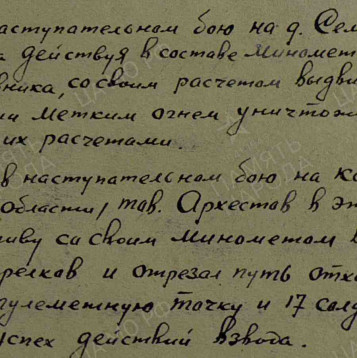 аступательном бою на д. Сем
а действуя в составе Миномет
вника, со своим расчетом выдви
ии метким огнем уничтож
их расчетами.
в наступательном бою на ко
области, тов. Архестов в эт
иву со своим минометом в
релков и отрезал путь отхо
пулеметную точку и 17 солд
успех действий взвода.